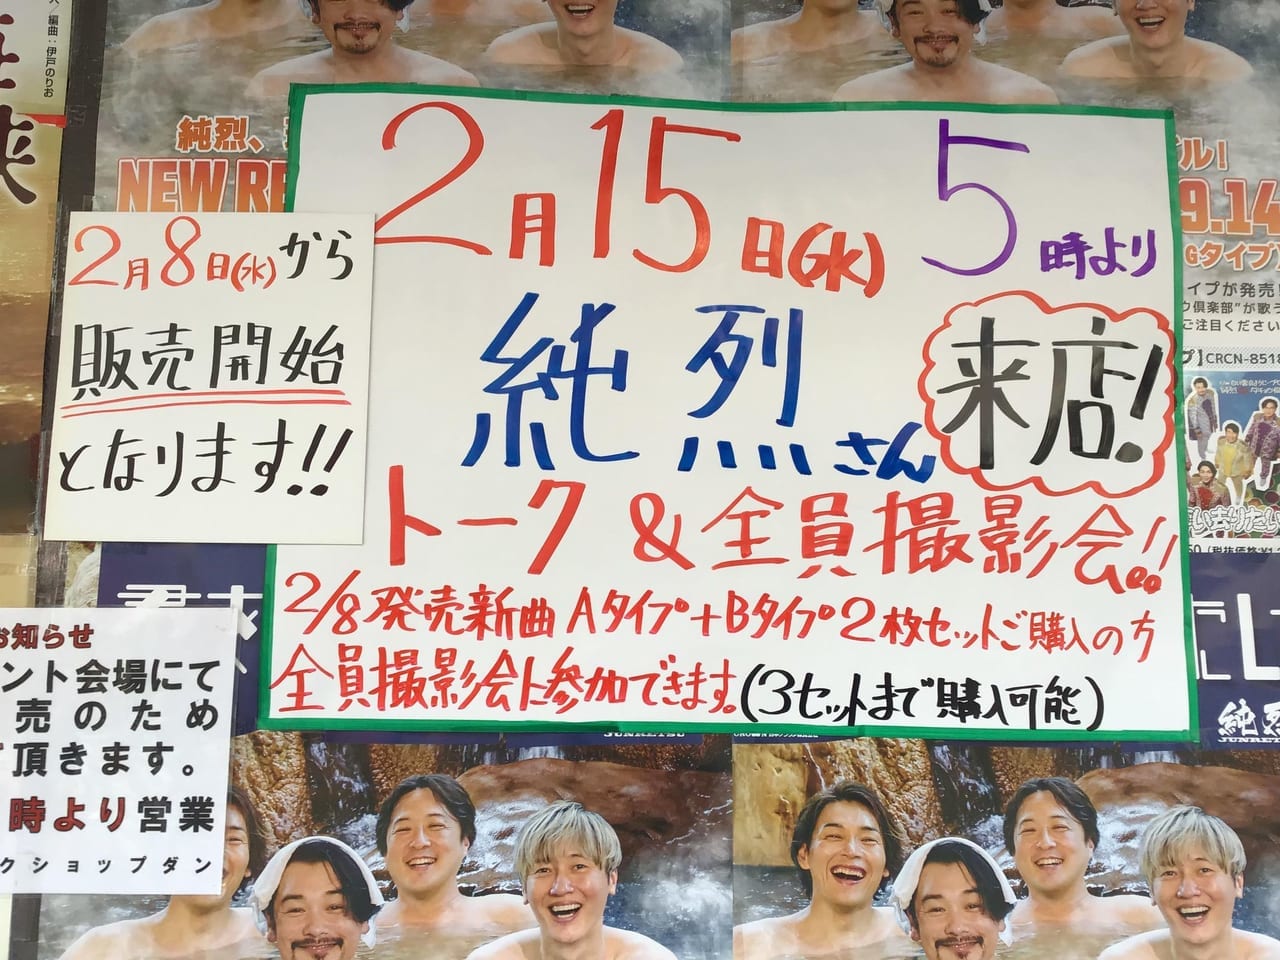 人／編曲：伊戸のりお
純烈、
NEW RE
ル！
9.14
Gタイプ】
イプが発売！
ウ倶楽部"が歌う
ご注目ください
プ】CRCN-8518
2月15日(水) 5時より
純烈さん来店!
トーク&全員撮影会!!
2/8発売新曲Aタイプ+Bタイプ2枚セットご購入の方
全員撮影会に参加できます。(3セットまで購入可能)
2月8日(水)から
販売開始
となります!!
お知らせ
ント会場にて
売のため
頂きます。
時より営業
クショップダン
純烈
JUNRETSU